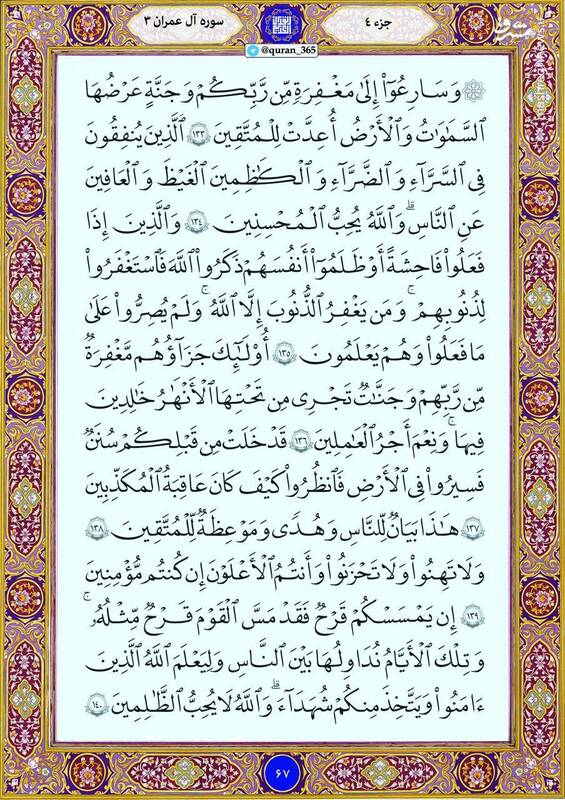 سوره آل عمران ۳
جزء ٤
@quran_365
وَسَارِعُوٓا۟ إِلَىٰ مَغْفِرَةٍ مِّن رَّبِّكُمْ وَجَنَّةٍ عَرْضُهَا
ٱلسَّمَـٰوَٰتُ وَٱلْأَرْضُ أُعِدَّتْ لِلْمُتَّقِينَ ١٣٣ ٱلَّذِينَ يُنفِقُونَ
فِى ٱلسَّرَّآءِ وَٱلضَّرَّآءِ وَٱلْكَـٰظِمِينَ ٱلْغَيْظَ وَٱلْعَافِينَ
عَنِ ٱلنَّاسِ ۗ وَٱللَّهُ يُحِبُّ ٱلْمُحْسِنِينَ ١٣٤ وَٱلَّذِينَ إِذَا
فَعَلُوا۟ فَـٰحِشَةً أَوْ ظَلَمُوٓا۟ أَنفُسَهُمْ ذَكَرُوا۟ ٱللَّهَ فَٱسْتَغْفَرُوا۟
لِذُنُوبِهِمْ ۚ وَمَن يَغْفِرُ ٱلذُّنُوبَ إِلَّا ٱللَّهُ ۚ وَلَمْ يُصِرُّوا۟ عَلَىٰ
مَا فَعَلُوا۟ وَهُمْ يَعْلَمُونَ ١٣٥ أُو۟لَـٰٓئِكَ جَزَآؤُهُم مَّغْفِرَةٌ
مِّن رَّبِّهِمْ وَجَنَّـٰتٌ تَجْرِى مِن تَحْتِهَا ٱلْأَنْهَـٰرُ خَـٰلِدِينَ
فِيهَا ۚ وَنِعْمَ أَجْرُ ٱلْعَـٰمِلِينَ ١٣٦ قَدْ خَلَتْ مِن قَبْلِكُمْ سُنَنٌ
فَسِيرُوا۟ فِى ٱلْأَرْضِ فَٱنظُرُوا۟ كَيْفَ كَانَ عَـٰقِبَةُ ٱلْمُكَذِّبِينَ
١٣٧ هَـٰذَا بَيَانٌ لِّلنَّاسِ وَهُدًى وَمَوْعِظَةٌ لِّلْمُتَّقِينَ ١٣٨
وَلَا تَهِنُوا۟ وَلَا تَحْزَنُوا۟ وَأَنتُمُ ٱلْأَعْلَوْنَ إِن كُنتُم مُّؤْمِنِينَ
١٣٩ إِن يَمْسَسْكُمْ قَرْحٌ فَقَدْ مَسَّ ٱلْقَوْمَ قَرْحٌ مِّثْلُهُۥ ۚ
وَتِلْكَ ٱلْأَيَّامُ نُدَاوِلُهَا بَيْنَ ٱلنَّاسِ وَلِيَعْلَمَ ٱللَّهُ ٱلَّذِينَ
ءَامَنُوا۟ وَيَتَّخِذَ مِنكُمْ شُهَدَآءَ ۗ وَٱللَّهُ لَا يُحِبُّ ٱلظَّـٰلِمِينَ ١٤٠
٦٧